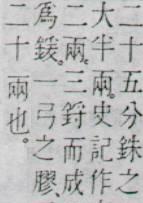 二十五分銖之
大半兩。史記作
二兩。三鋝而成
爲鍰。一弓之膠、
二十兩也。